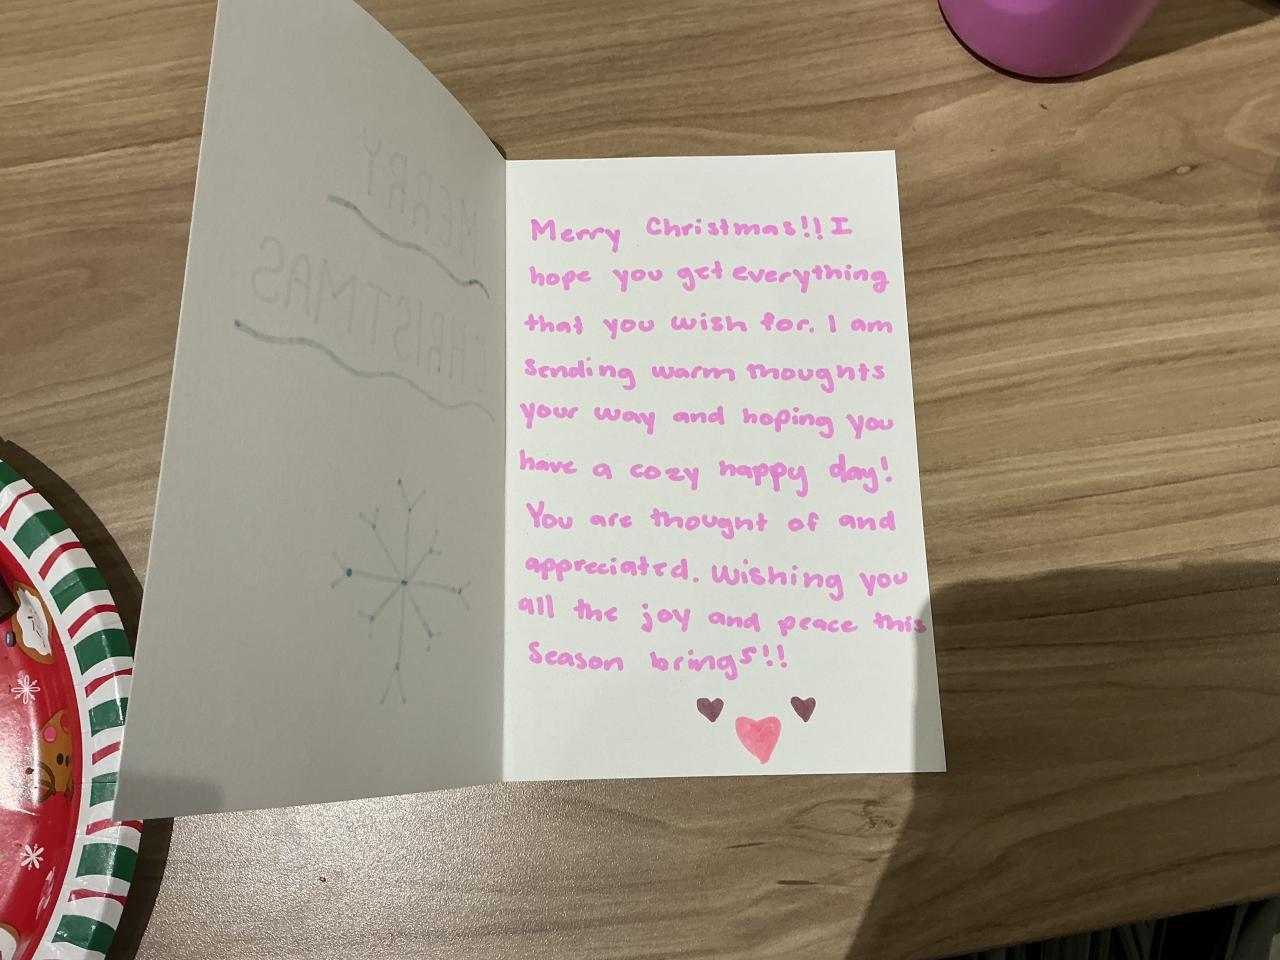 MERRY
CHRISTMAS
Merry Christmas!! I
hope you get everything
that you wish for. I am
sending warm thoughts
your way and hoping you
have a cozy happy day!
You are thought of and
appreciated. Wishing you
all the joy and peace this
season brings!!